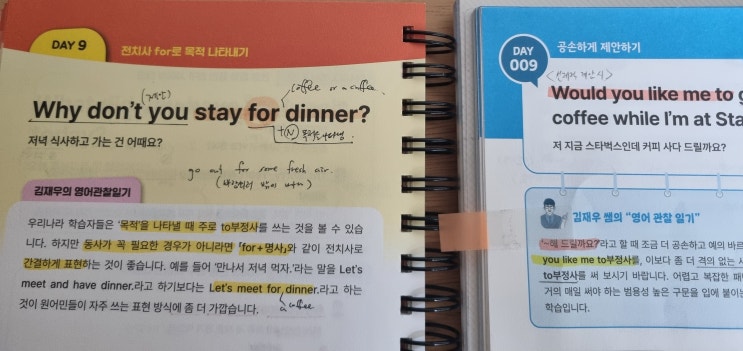 DAY 9
전치사 for로 목적 나타내기
coffee or a coffee.
(제안)
Why don't you stay for dinner?
+N
저녁 식사하고 가는 건 어때요?
go out for some fresh air.
(바람쐬러 밖에 나가다)
김재우의 영어관찰일기
우리나라 학습자들은 '목적'을 나타낼 때 주로 to부정사를 쓰는 것을 볼 수 있습
니다. 하지만 동사가 꼭 필요한 경우가 아니라면 「for+명사」와 같이 전치사로
간결하게 표현하는 것이 좋습니다. 예를 들어 '만나서 저녁 먹자.'라는 말을 Let's
meet and have dinner.라고 하기보다는 Let's meet for dinner.라고 하는
것이 원어민들이 자주 쓰는 표현 방식에 좀 더 가깝습니다.
a coffee
DAY
009
공손하게 제안하기
Would you like me to g
coffee while I'm at Sta
저 지금 스타벅스인데 커피 사다 드릴까요?
김재우 쌤의 "영어 관찰 일기"
'~해 드릴까요?'라고 할 때 조금 더 공손하고 예의 바르
you like me to부정사를, 이보다 좀 더 격의 없는 사
to부정사를 써 보시기 바랍니다. 어렵고 복잡한 패
거의 매일 써야 하는 범용성 높은 구문을 입에 붙이는
학습입니다.